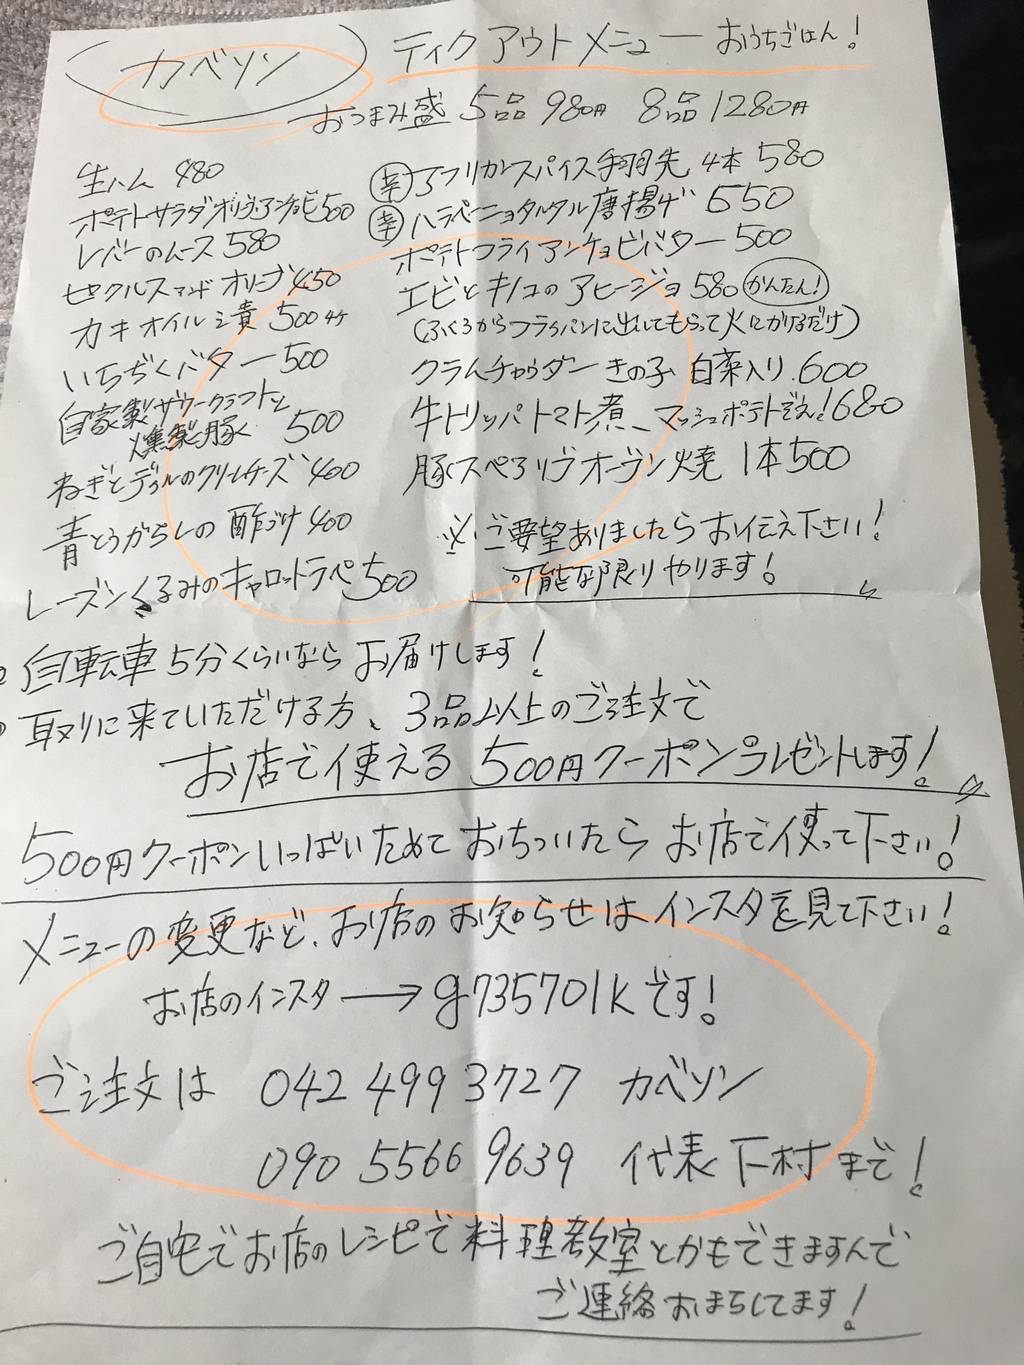 カベソン テイクアウトメニュー おうちごはん!
おつまみ盛 5品 980円 8品 1280円
生ハム 480
ポテトサラダオリーブアンチョビ 500
レバーのムース 580
ピクルスアンドオリーブ 450
カキオイル漬 500
いちぢくバター 500
自家製ザワークラフトと
燻製豚 500
ねぎとディルのクリームチーズ 400
青とうがらしの酢づけ 400
レーズンくるみのキャロットラペ 500
辛 アフリカンスパイス手羽先 4本 580
辛 ハラペーニョタルタル唐揚げ 550
ポテトフライアンチョビバター 500
エビとキノコのアヒージョ 580 かんたん!
(ふくろからフライパンに出してもらって火にかけるだけ)
クラムチャウダー きの子 白菜入り 600
牛トリッパトマト煮 マッシュポテトぞえ! 680
豚スペアリブオーブン焼 1本 500
※ご要望ありましたらお伝え下さい!
可能な限りやります!
自転車5分くらいならお届けします!
取りに来ていただける方、3品以上のご注文で
お店で使える500円クーポンプレゼントします!
500円クーポンいっぱいためておちついたらお店で使って下さい!
メニューの変更など、お店のお知らせはインスタを見て下さい!
お店のインスタ→g735701kです!
ご注文は 042 499 3727 カベソン
090 5566 9639 代表 下村まで!
ご自宅でお店のレシピで料理教室とかもできますんで
ご連絡おまちしてます!